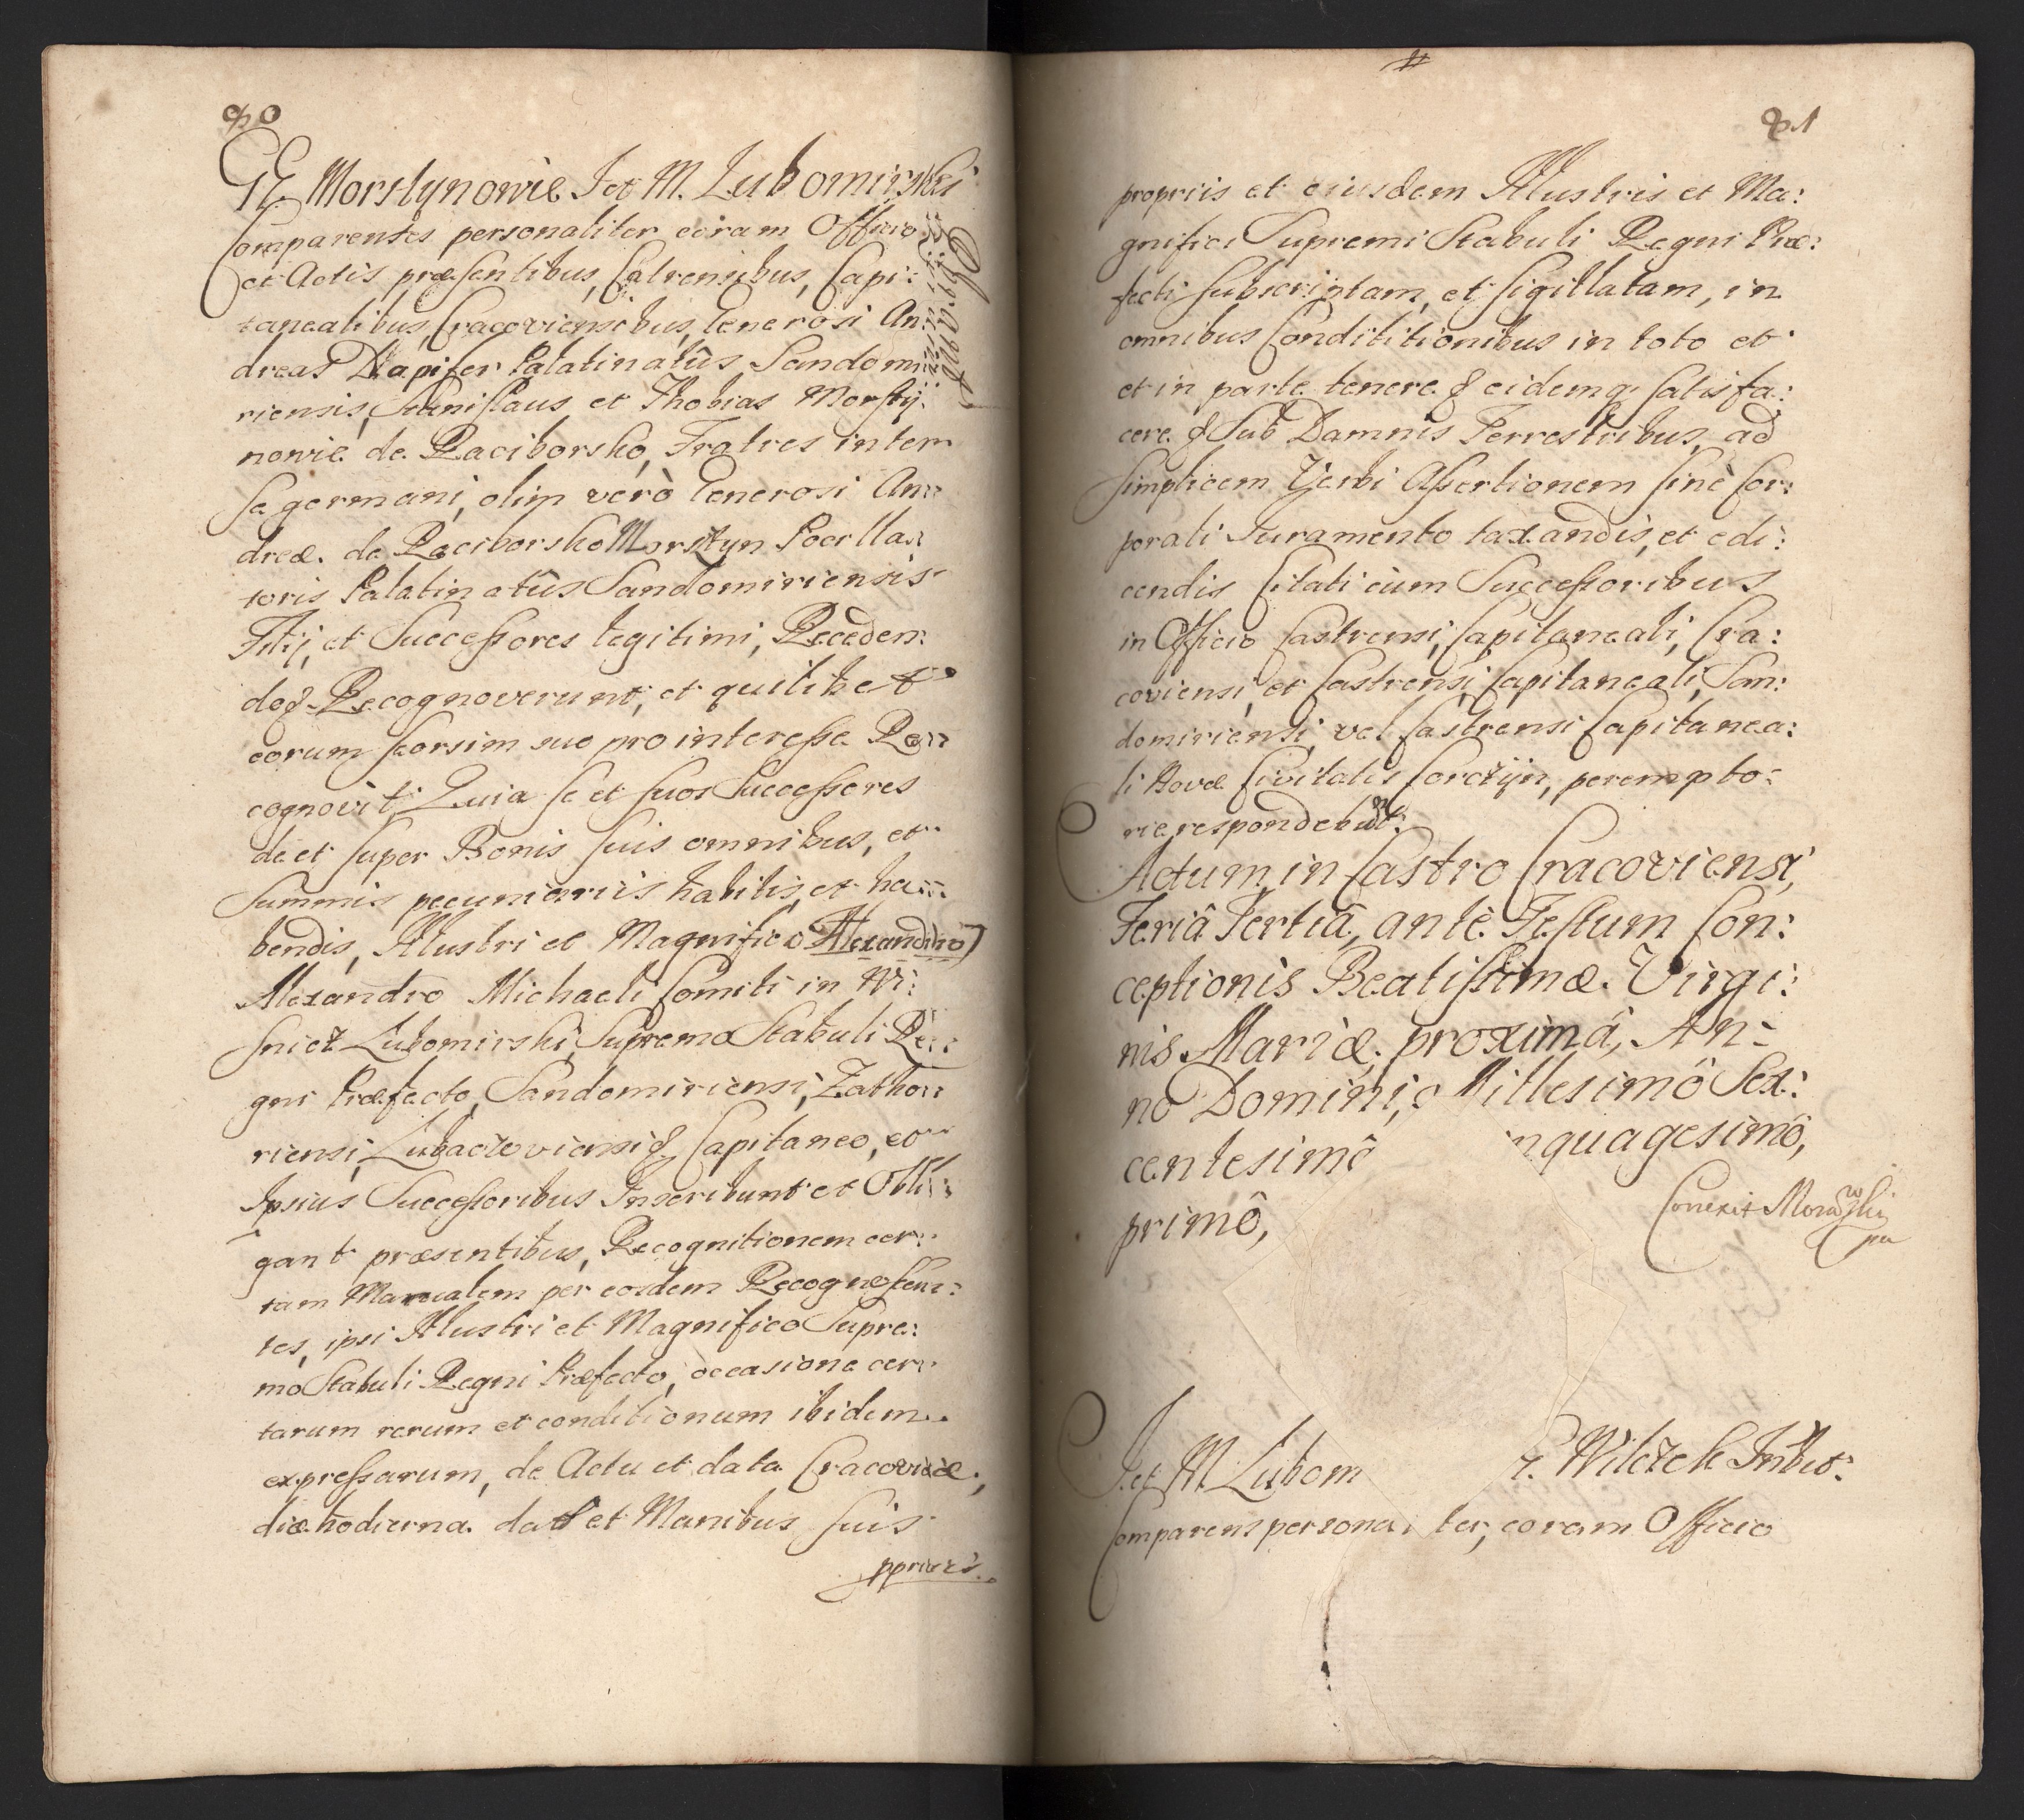 80
GG Morstynowie I et M. Lubomirski
Comparentes personaliter coram Officio
et Actis præsentibus, Castrensibus, Capi:
taneatibus, Cracoviensibus, Generosi An:
dreas Dapifer Palatinatûs Sandomi:
riensis, Stanislaus et Thobias Morsty:
nowie de Raciborsko, Fratres inter
se germani, olim verò Generosi An:
dreæ de Raciborsko Morsztyn Pocilla:
toris Palatinatûs Sandomiriensis
Filij, et Successores legitimi, Receden:
do& Recognoverunt, et quilibet
eorum seorsim suo pro interesse Re:
cognovit, Quia se et suos Successores
de et super Bonis suis omnibus, et
Summis pecuniariis habitis, et ha:
bendis, Illustri et Magnifico Alexandro
Alexandro Michaeli Comiti in Wi:
snicz Lubomirski, Supremo Stabuli Re:
gni Præfecto, Sandomiriensi, Zatho:
riensi, Lubaczoviensi& Capitaneo, et
Ipsius Successoribus Inscribunt et Obli:
gant præsentibus, Recognitionem cer:
tam Manualem per eosdem Recognoscen:
tes, ipsi Illustri et Magnifico Supre:
mo Stabuli Regni Præfecto, occasione cer:
tarum rerum et conditionum ibidem
expressarum, de Actu et data Cracoviæ,
diæ hodierna dat et Manibus suis
pprijs
81
propriis et eiusdem Illustris et Ma:
gnifici Supremi Stabuli Regni Præ:
fecti subscriptam, et sigillatam, in
omnibus Condititionibus in toto et
et in parte tenere & eidemq; satisfa:
cere & Sub Damnis Terrestribus, ad
simplicem Verbi Assertionem sinè Cor:
porali Iuramento taxandis, et edi:
cendis Citati cùm Successoribus
in Officio Castrensi, Capitaneali, Cra:
coviensi, et Castrensi Capitaneali, San:
domiriensi, vel Castrensi Capitanea:
li Novæ Civitatis Corczyn, perempto:
rie respondebunt.
Actum in Castro Cracoviensi,
Feriâ Tertiâ, antè Festum Con:
ceptionis Beatissimæ Virgi:
nis Mariæ proximâ, An:
no Domini, Millesimô Sex:
centesimô nquagesimô,
primô,
Conexit Morawski
pu
I et M. Lubom Wilczek Inbit:
Comparens persona ter, coram Officio